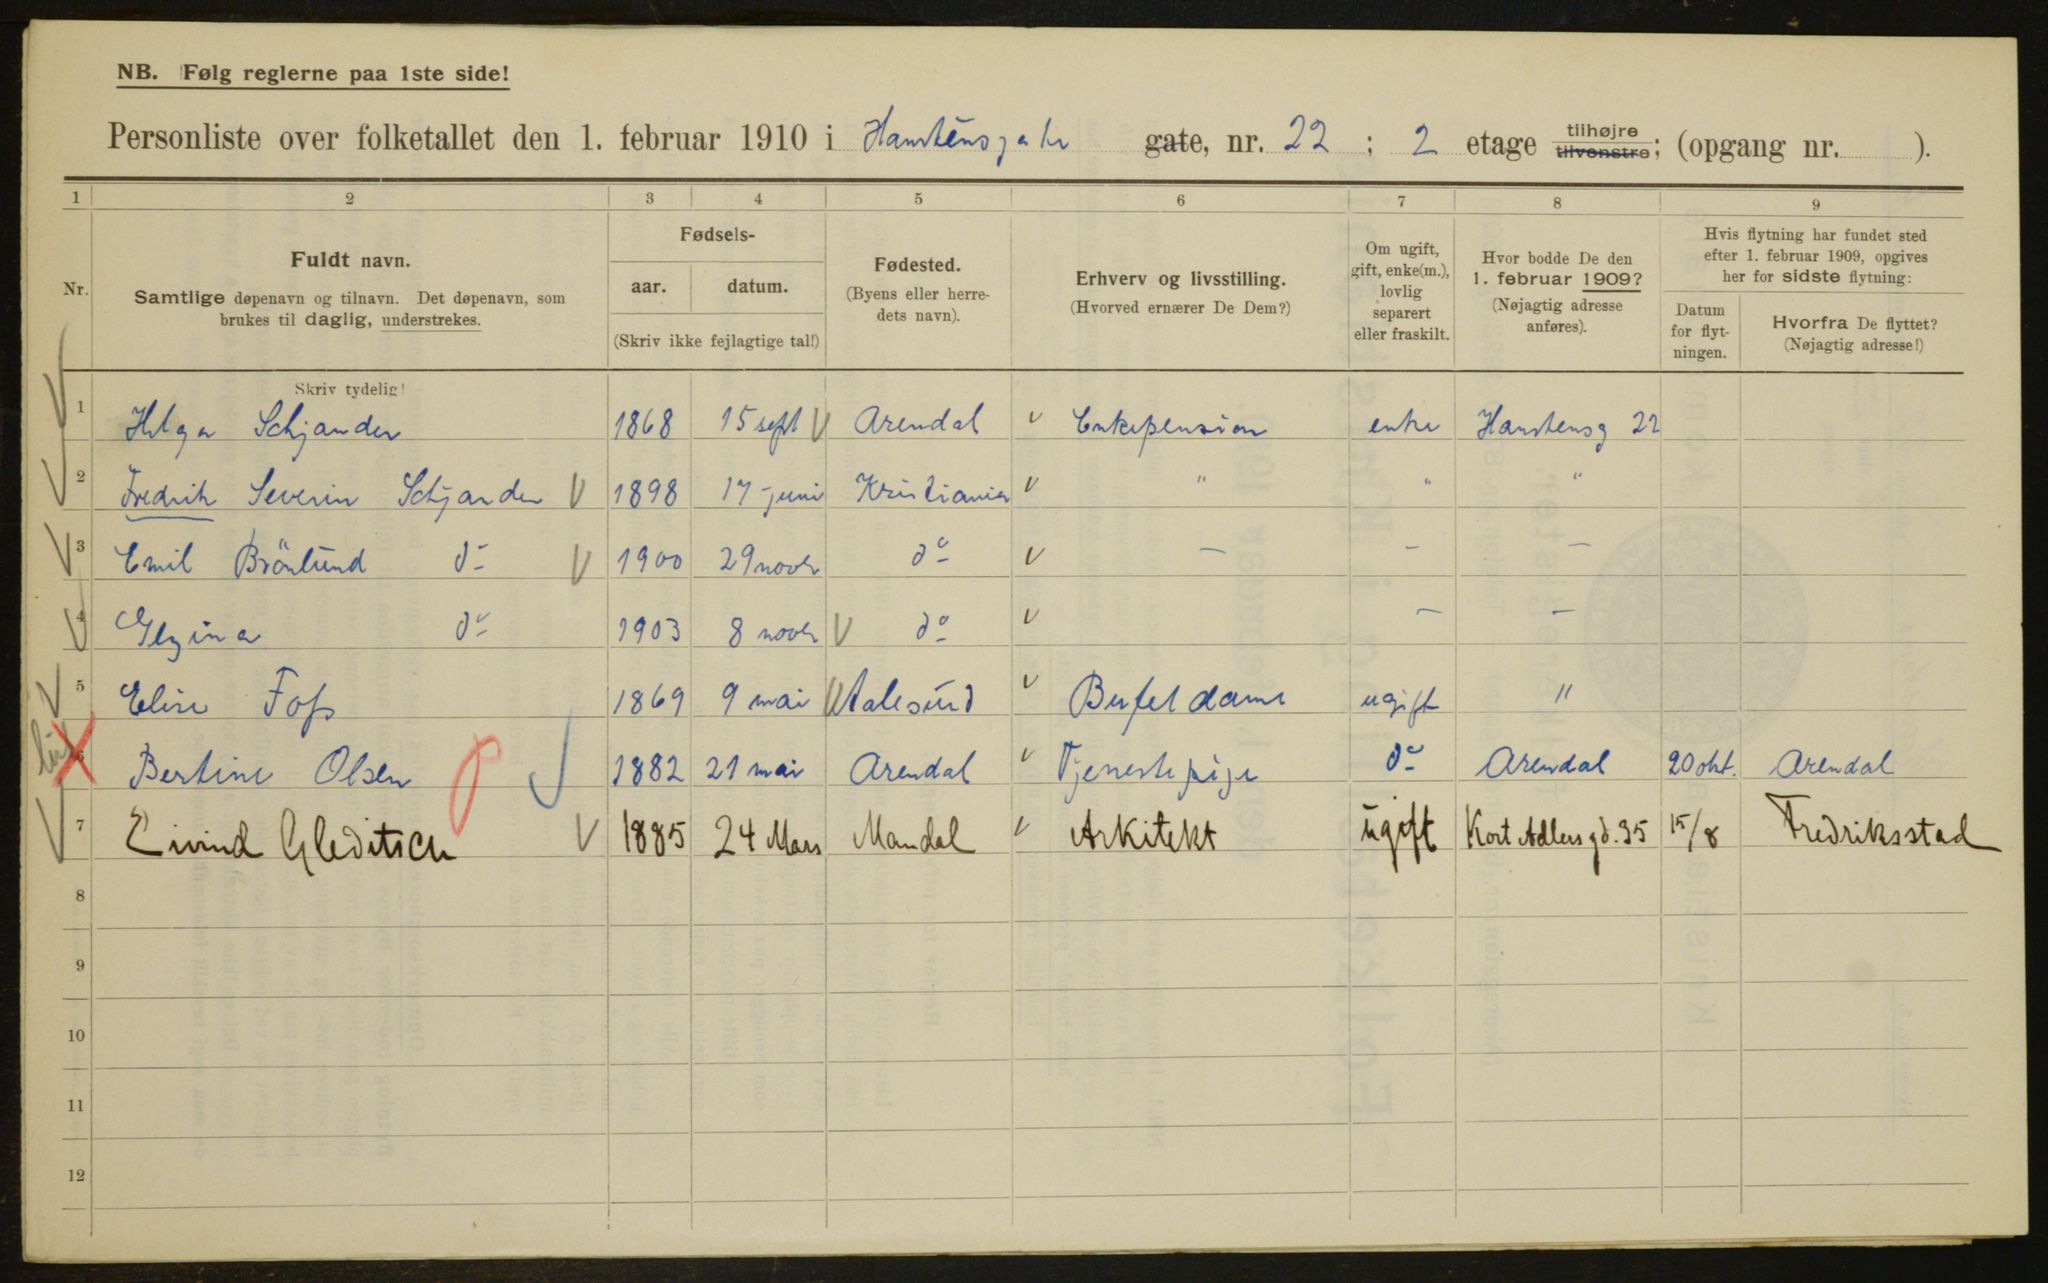 NB. Følg reglerne paa 1ste side!
Personliste over folketallet den 1. februar 1910 i Hansteensgate gate, nr. 22 ; 2 etage tilhøjre tilvenstre; (opgang nr. ).
1 2 3 4 5 6 7 8 9
Nr.
Fuldt navn.
Samtlige døpenavn og tilnavn. Det døpenavn, som
brukes til daglig, understrekes.
Fødsels-
aar. datum.
(Skriv ikke fejlagtige tal!)
Fødested.
(Byens eller herre-
dets navn).
Erhverv og livsstilling.
(Hvorved ernærer De Dem?)
Om ugift,
gift, enke(m.),
lovlig
separert
eller fraskilt.
Hvor bodde De den
1. februar 1909?
(Nøjagtig adresse
anføres).
Hvis flytning har fundet sted
efter 1. februar 1909, opgives
her for sidste flytning:
Datum
for flyt-
ningen.
Hvorfra De flyttet?
(Nøjagtig adresse!)
Skriv tydelig!
1 Helga Schjander 1868 15 sept Arendal Enkepension enke Hanstensg 22
2 Fredrik Severin Schjander 1898 17 juni Kristiania " " "
3 Emil Brönlund do 1900 29 novbr do — — —
4 Gezina do 1903 8 novbr do — —
5 Elise Foss 1869 9 mai Aalesund Bufetdame ugift "
6 Bertine Olsen 1882 21 mai Arendal Tjenestepige do Arendal 20 okt. Arendal
7 Eivind Gleditsch 1885 24 Mars Mandal Arkitekt ugift Kort Adlersgd. 35 15/8 Fredriksstad
8
9
10
11
12